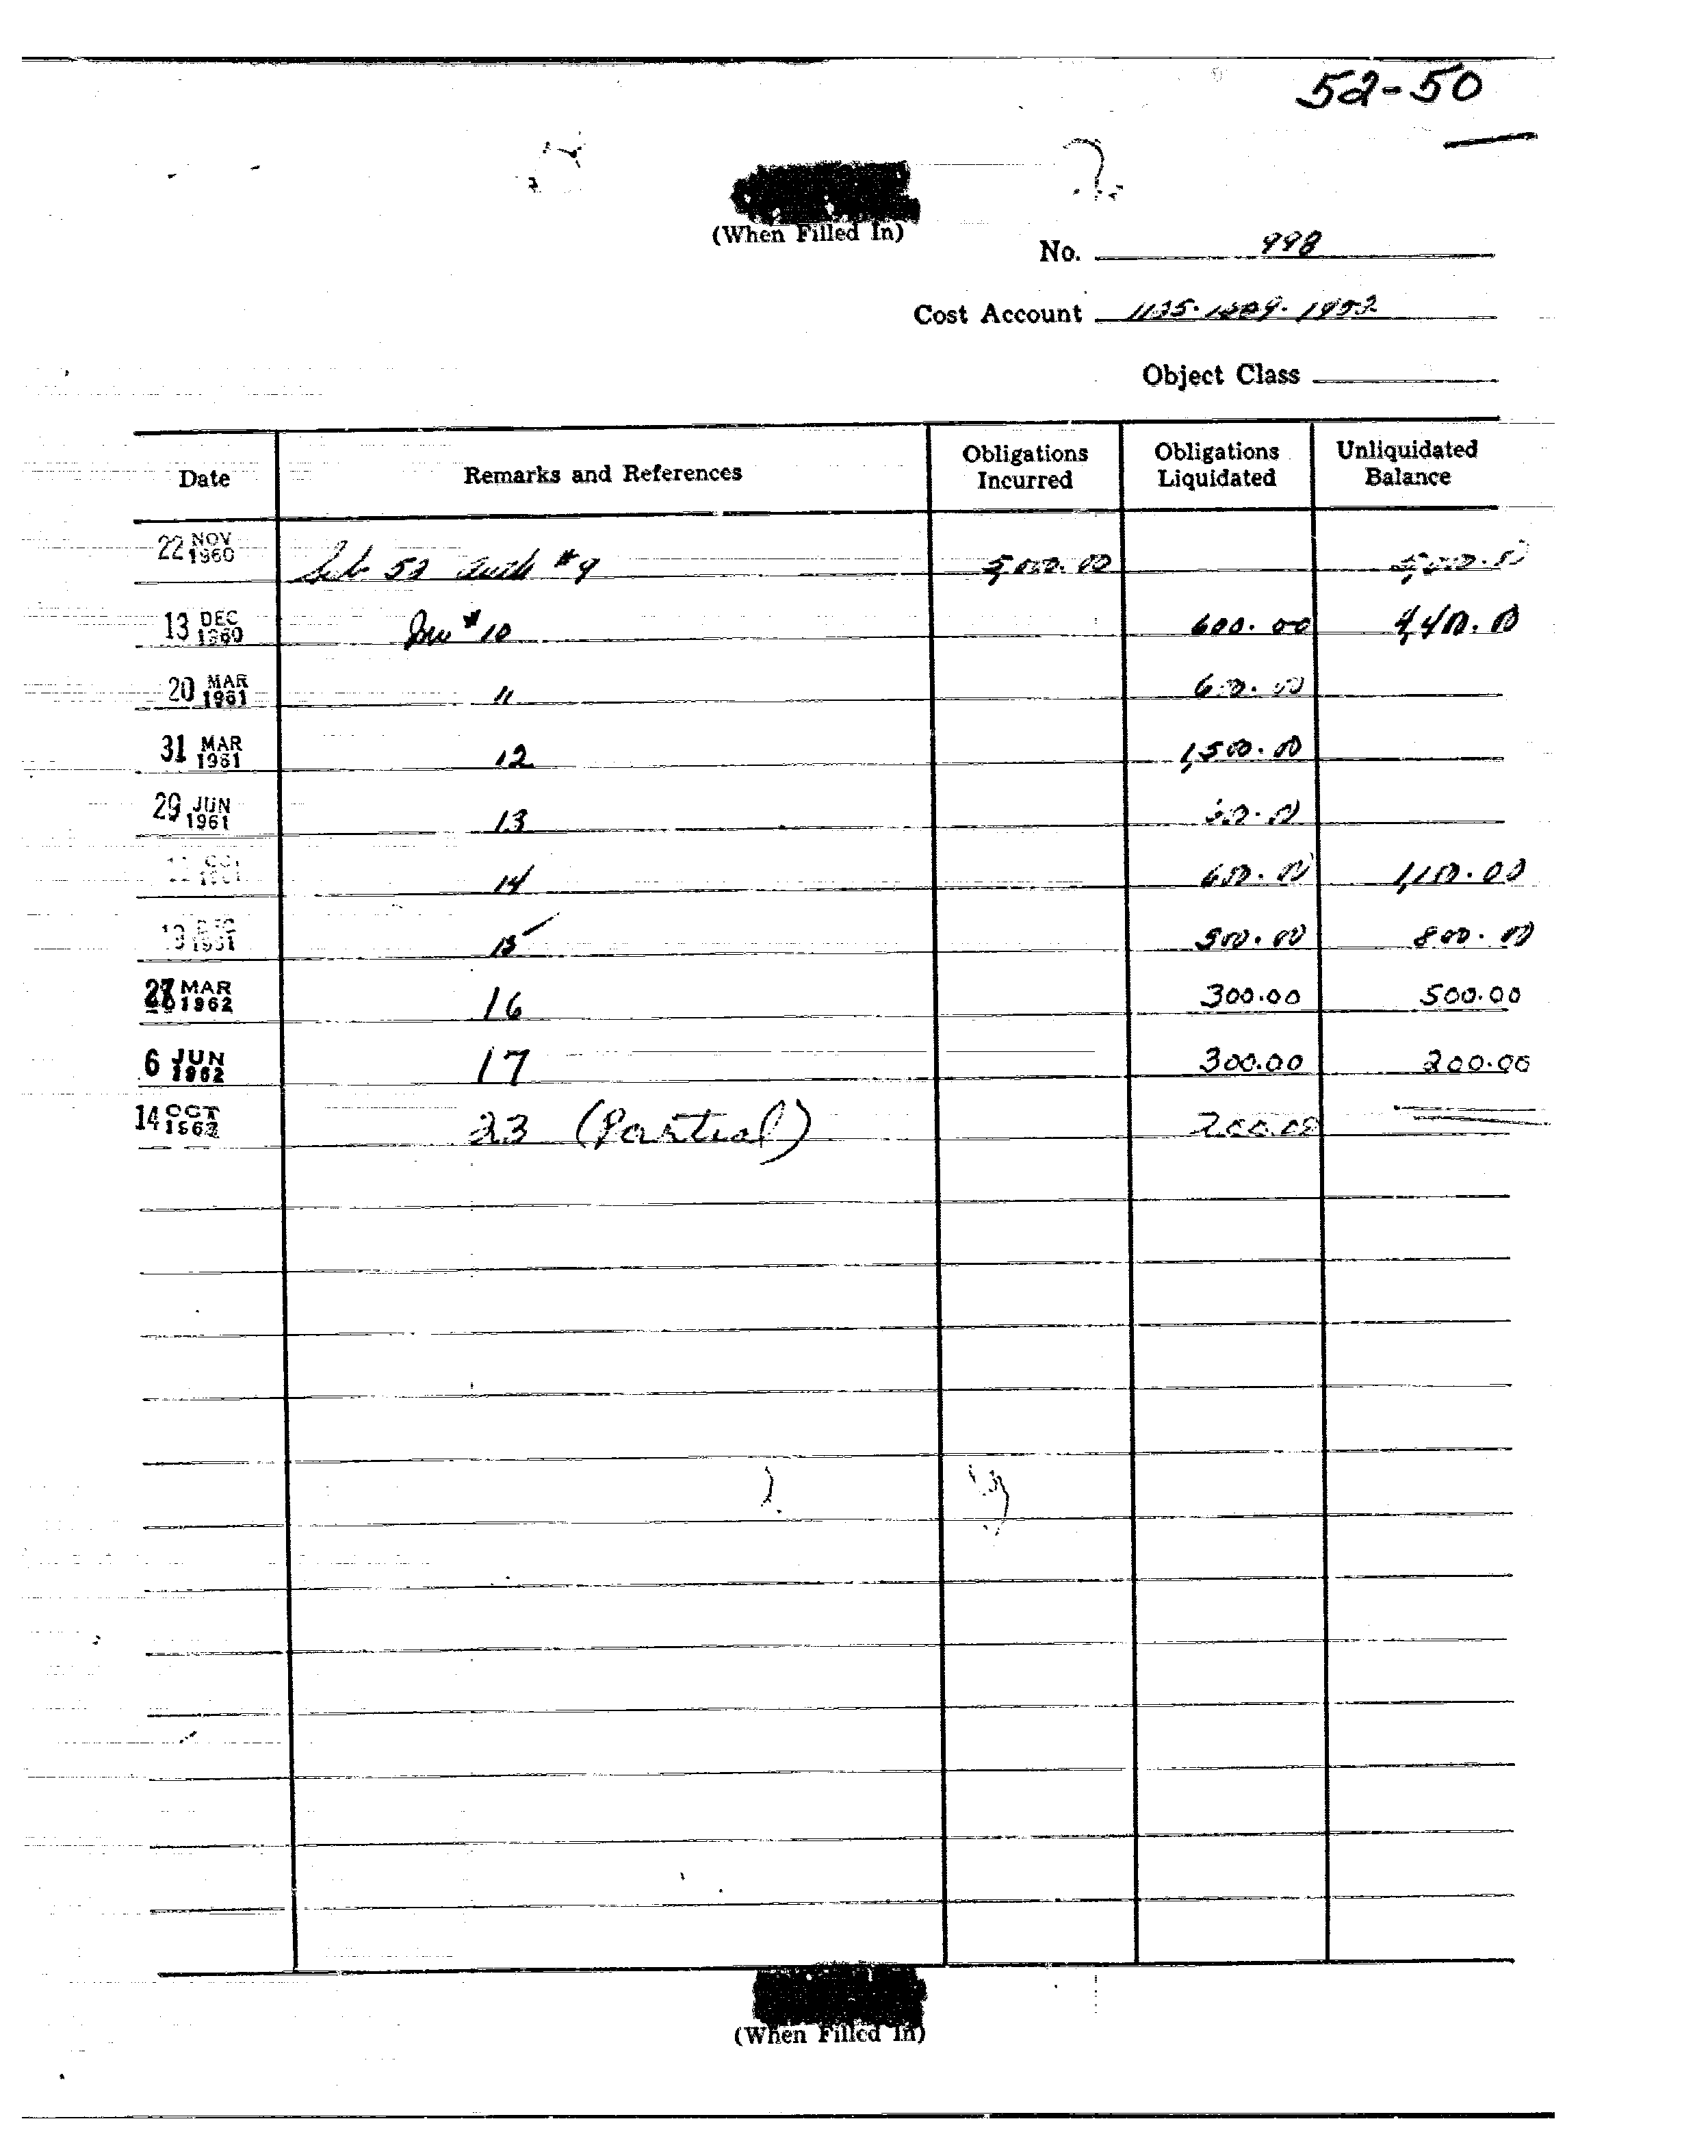 52-50
(When Filled In)
No. 998
Cost Account
Object Class
Date Remarks and References Obligations Incurred Obligations Liquidated Unliquidated Balance
22 NOV 1960 Sub 52 #9 5,000.00 5,000.00
13 DEC 1960 Inv #10 600.00 4,400.00
20 MAR 1961 11 600.00
31 MAR 1961 12 1,500.00
29 JUN 1961 13
1961 14 600.00 1,100.00
1961 15 300.00 800.00
MAR 1962 16 300.00 500.00
6 JUN 1962 17 300.00 200.00
14 OCT 23 (Partial) 200.00
(When Filled In)